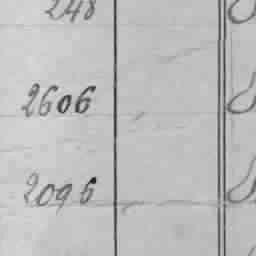 248
2606
2096